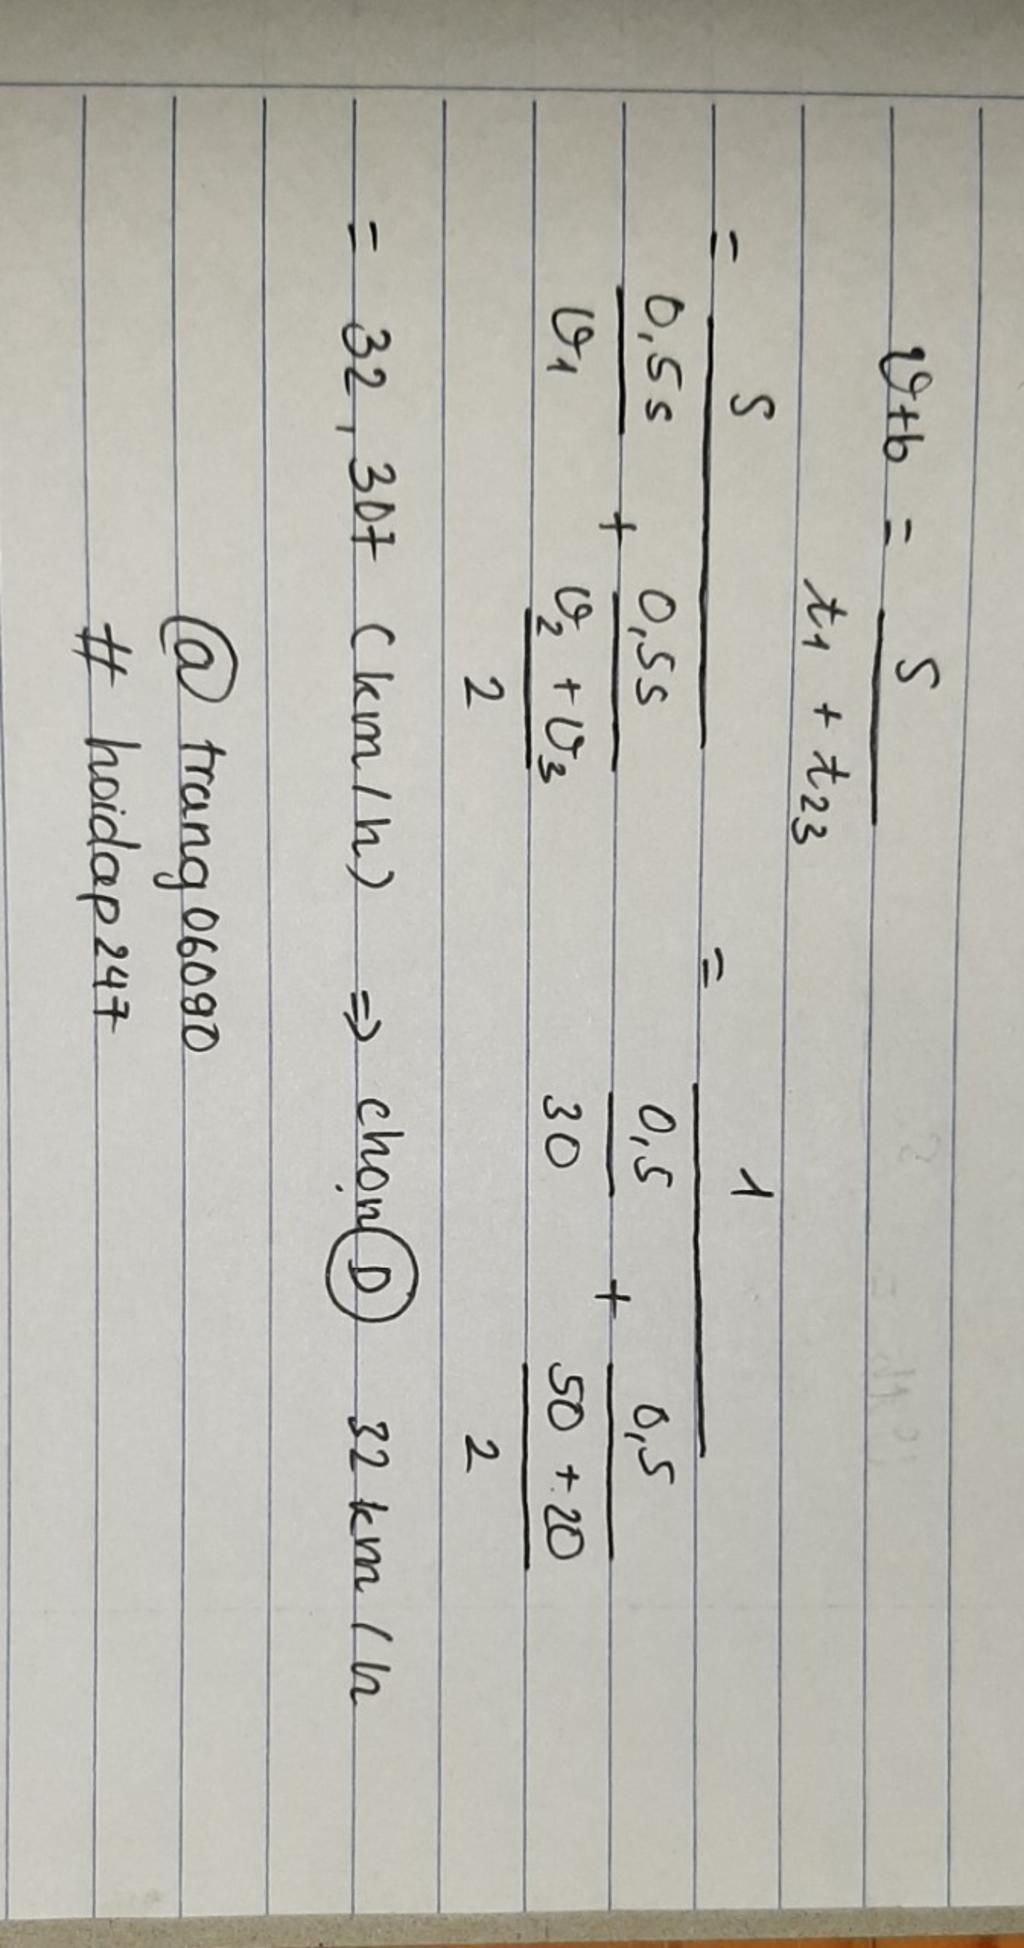 v+b = S / (t₁ + t₂₃)
= S / (0,5s / v₁ + 0,5s / ((v₂ + v₃) / 2)) = 1 / (0,5 / 30 + 0,5 / ((50 + 20) / 2))
= 32,307 (km/h) ⇒ chọn D 32 km/h
@trang06090
# hoidap247